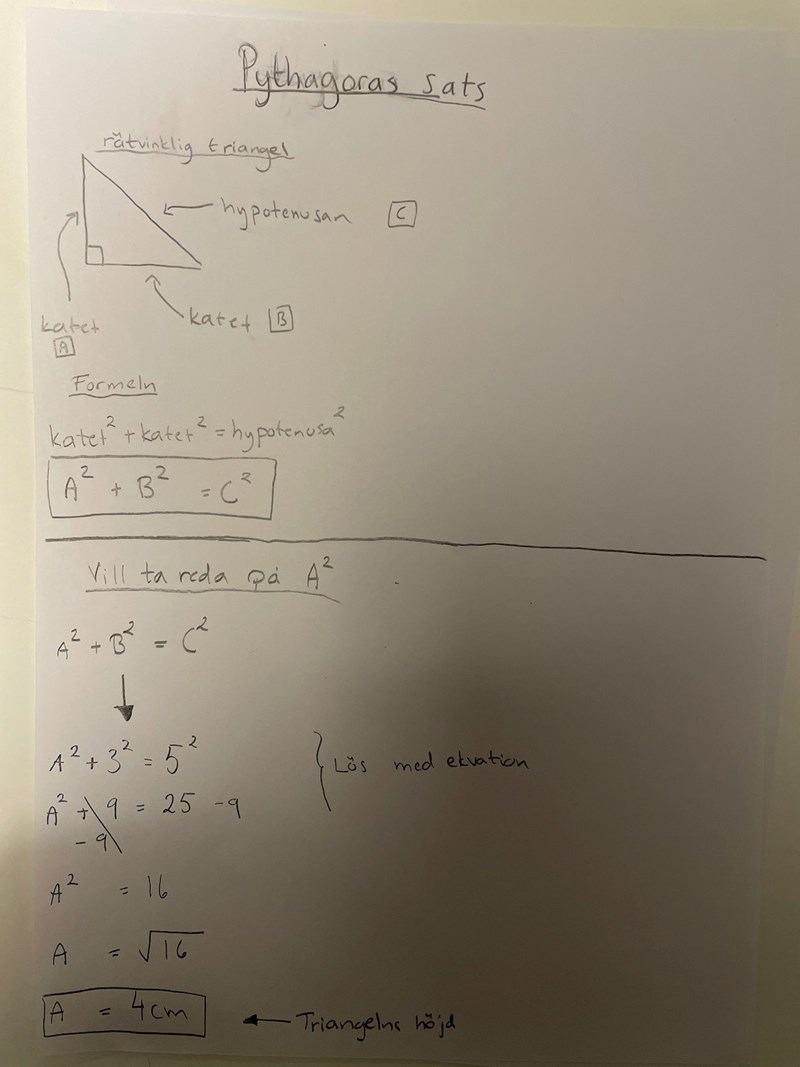 Pythagoras sats
rätvinklig triangel
hypotenusan C
katet B
katet
A
Formeln
katet² + katet² = hypotenusa²
A² + B² = C²
Vill ta reda på A²
A² + B² = C²
A² + 3² = 5²
Lös med ekvation
A² + 9 = 25 - 9
- 9
A² = 16
A = √16
A = 4cm
Triangelns höjd